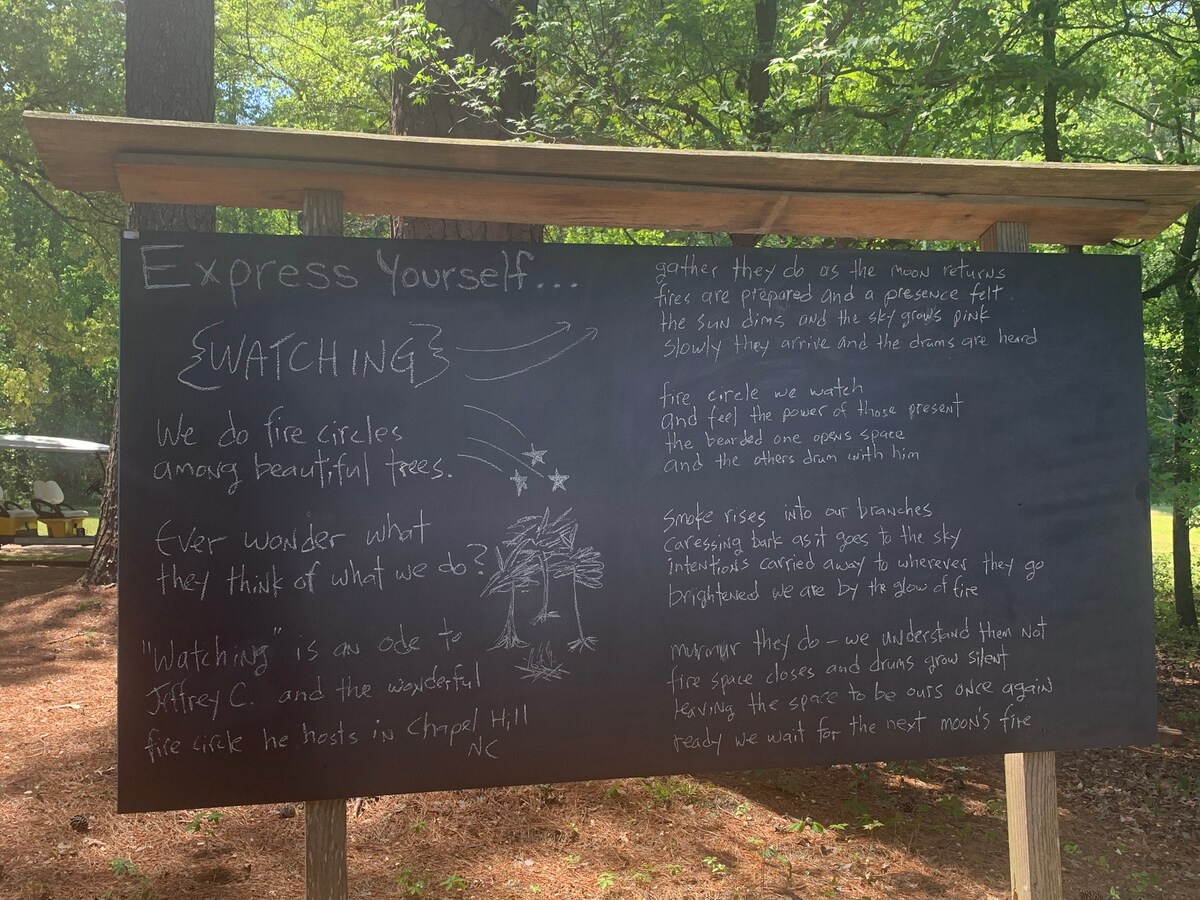 Express Yourself...
{WATCHING}
We do fire circles
among beautiful trees.
Ever wonder what
they think of what we do?
"Watching" is an ode to
Jeffrey C. and the wonderful
fire circle he hosts in Chapel Hill
NC
gather they do as the moon returns
fires are prepared and a presence felt
the sun dims and the sky grows pink
slowly they arrive and the drums are heard
fire circle we watch
and feel the power of those present
the bearded one opens space
and the others drum with him
smoke rises into our branches
caressing bark as it goes to the sky
intentions carried away to wherever they go
brightened we are by the glow of fire
murmur they do - we understand them not
fire space closes and drums grow silent
leaving the space to be ours once again
ready we wait for the next moon's fire